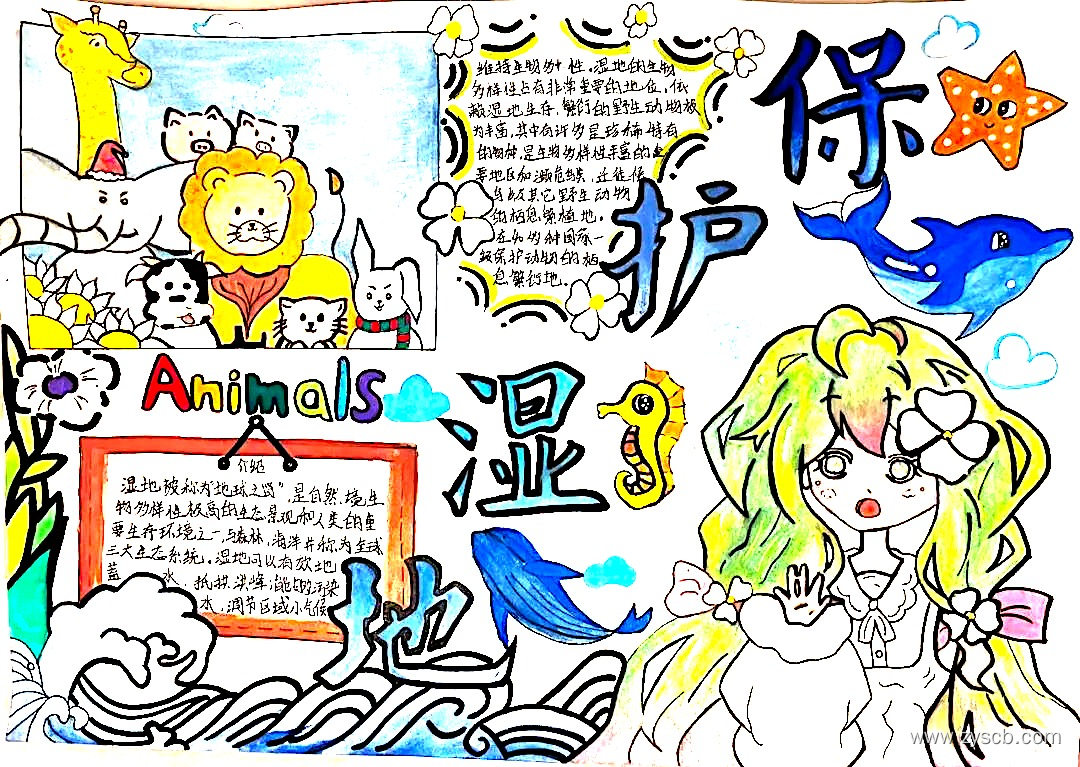 维持生物多样性,湿地的生物
多样性占有非常重要的地位,依
赖湿地生存、繁衍的野生动物极
为丰富,其中有许多是珍稀特有
的物种,是生物多样性丰富的重
要地区和濒危鸟类、迁徙候
鸟以及其它野生动物
的栖息繁殖地。
在40多种国家一
级保护动物的栖
息繁衍地。
保
护
湿
地
Animals
介绍
湿地被称为"地球之肾",是自然环境生
物多样性极高的生态景观和人类的重
要生存环境之一,与森林、海洋并称为全球
三大生态系统。湿地可以有效地
蓄水、抵抗洪峰;消能够污染
水,调节区域小气候
www.zyscb.com